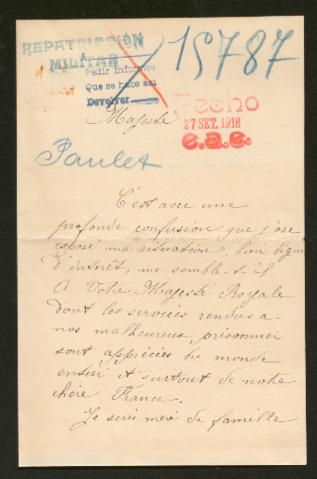 REPATRIACIÓN
MILITAR
15787
Pedir informes
Que se hace así
Devolver
Fecho
27 SET. 1918
e.a.e.
Majesté
Paulet
C'est avec une
profonde confusion que j'ose
exposer ma situation, bien digne
d'intérêt, me semble-t-il
A Votre Majesté Royale
dont les services rendus a
nos malheureux prisonnier
sont appréciés du monde
entier et surtout de notre
chère France.
Je suis mère de famille